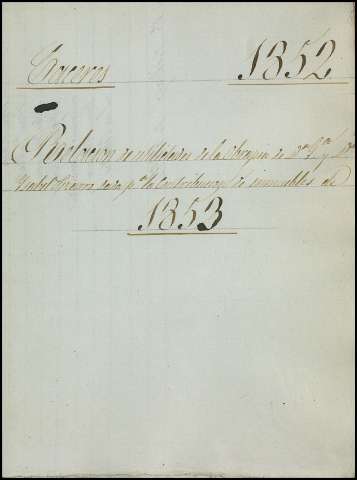 Caceres 1852
Relacion de utilidades de la Obrapia de Dn. y Da.
Isabel dada pa. la Contribucion de inmuebles de
1853